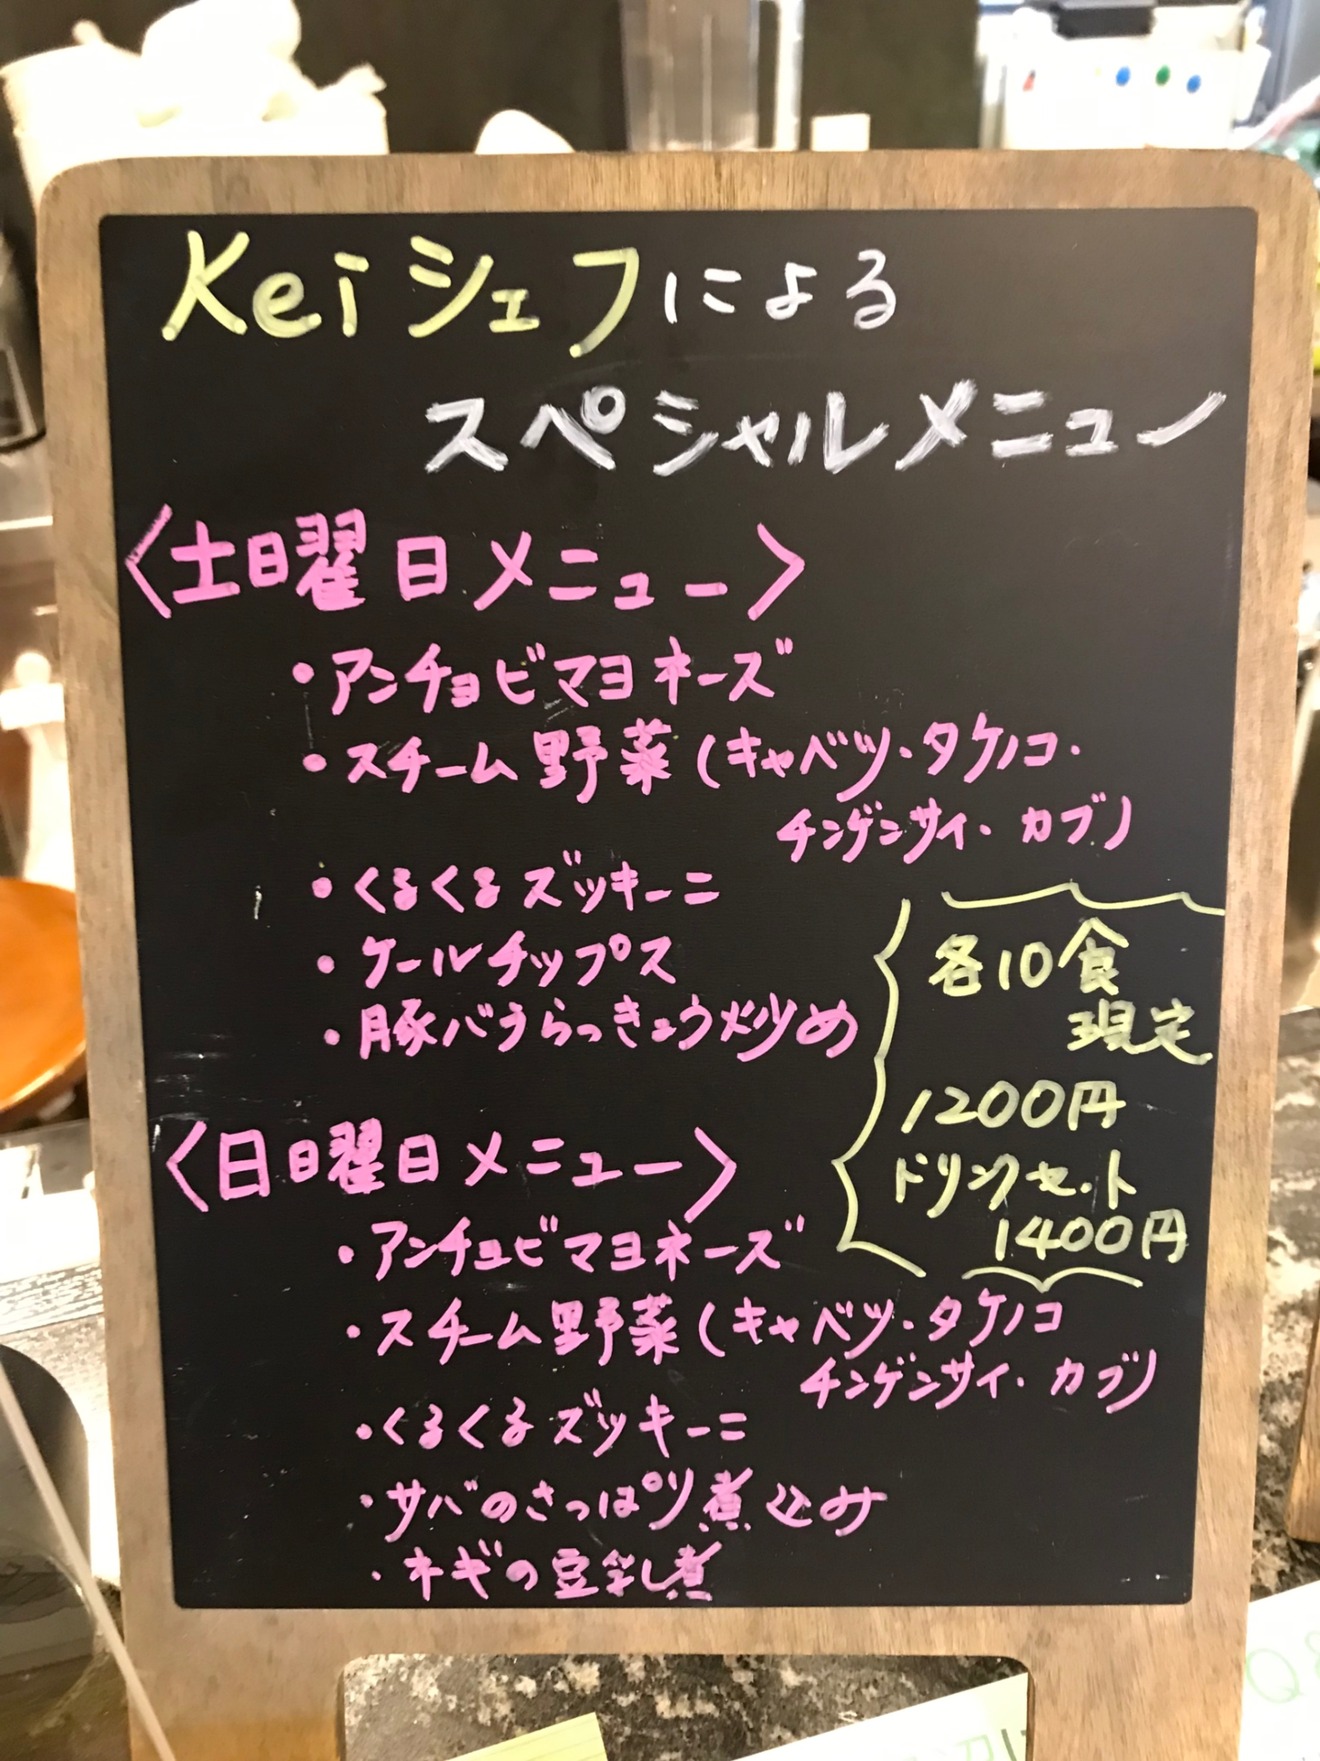 Keiシェフによる
スペシャルメニュー
〈土曜日メニュー〉
・アンチョビマヨネーズ
・スチーム野菜(キャベツ・タケノコ・
チンゲンサイ・カブ)
・くるくるズッキーニ
・ケールチップス
・豚バラらっきょう炒め
各10食
現定
1200円
ドリンクセット
1400円
〈日曜日メニュー〉
・アンチョビマヨネーズ
・スチーム野菜(キャベツ・タケノコ
チンゲンサイ・カブ)
・くるくるズッキーニ
・サバのさっぱり煮込み
・ネギの豆乳煮